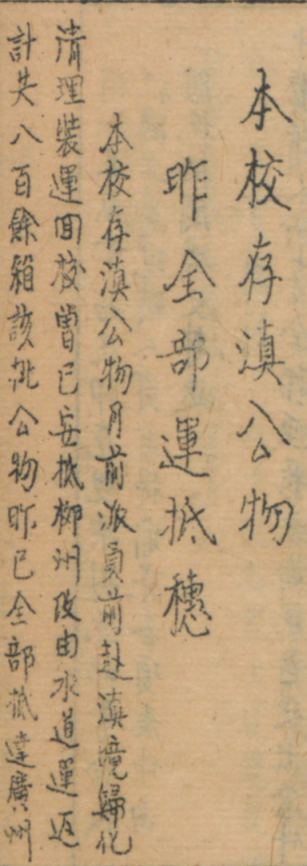 本校存滇公物
昨全部運抵穗
本校存滇公物月前派員前赴滇境歸化
清理裝運回校曾已安抵柳州改由水道運返
計共八百餘箱該批公物昨已全部抵達廣州